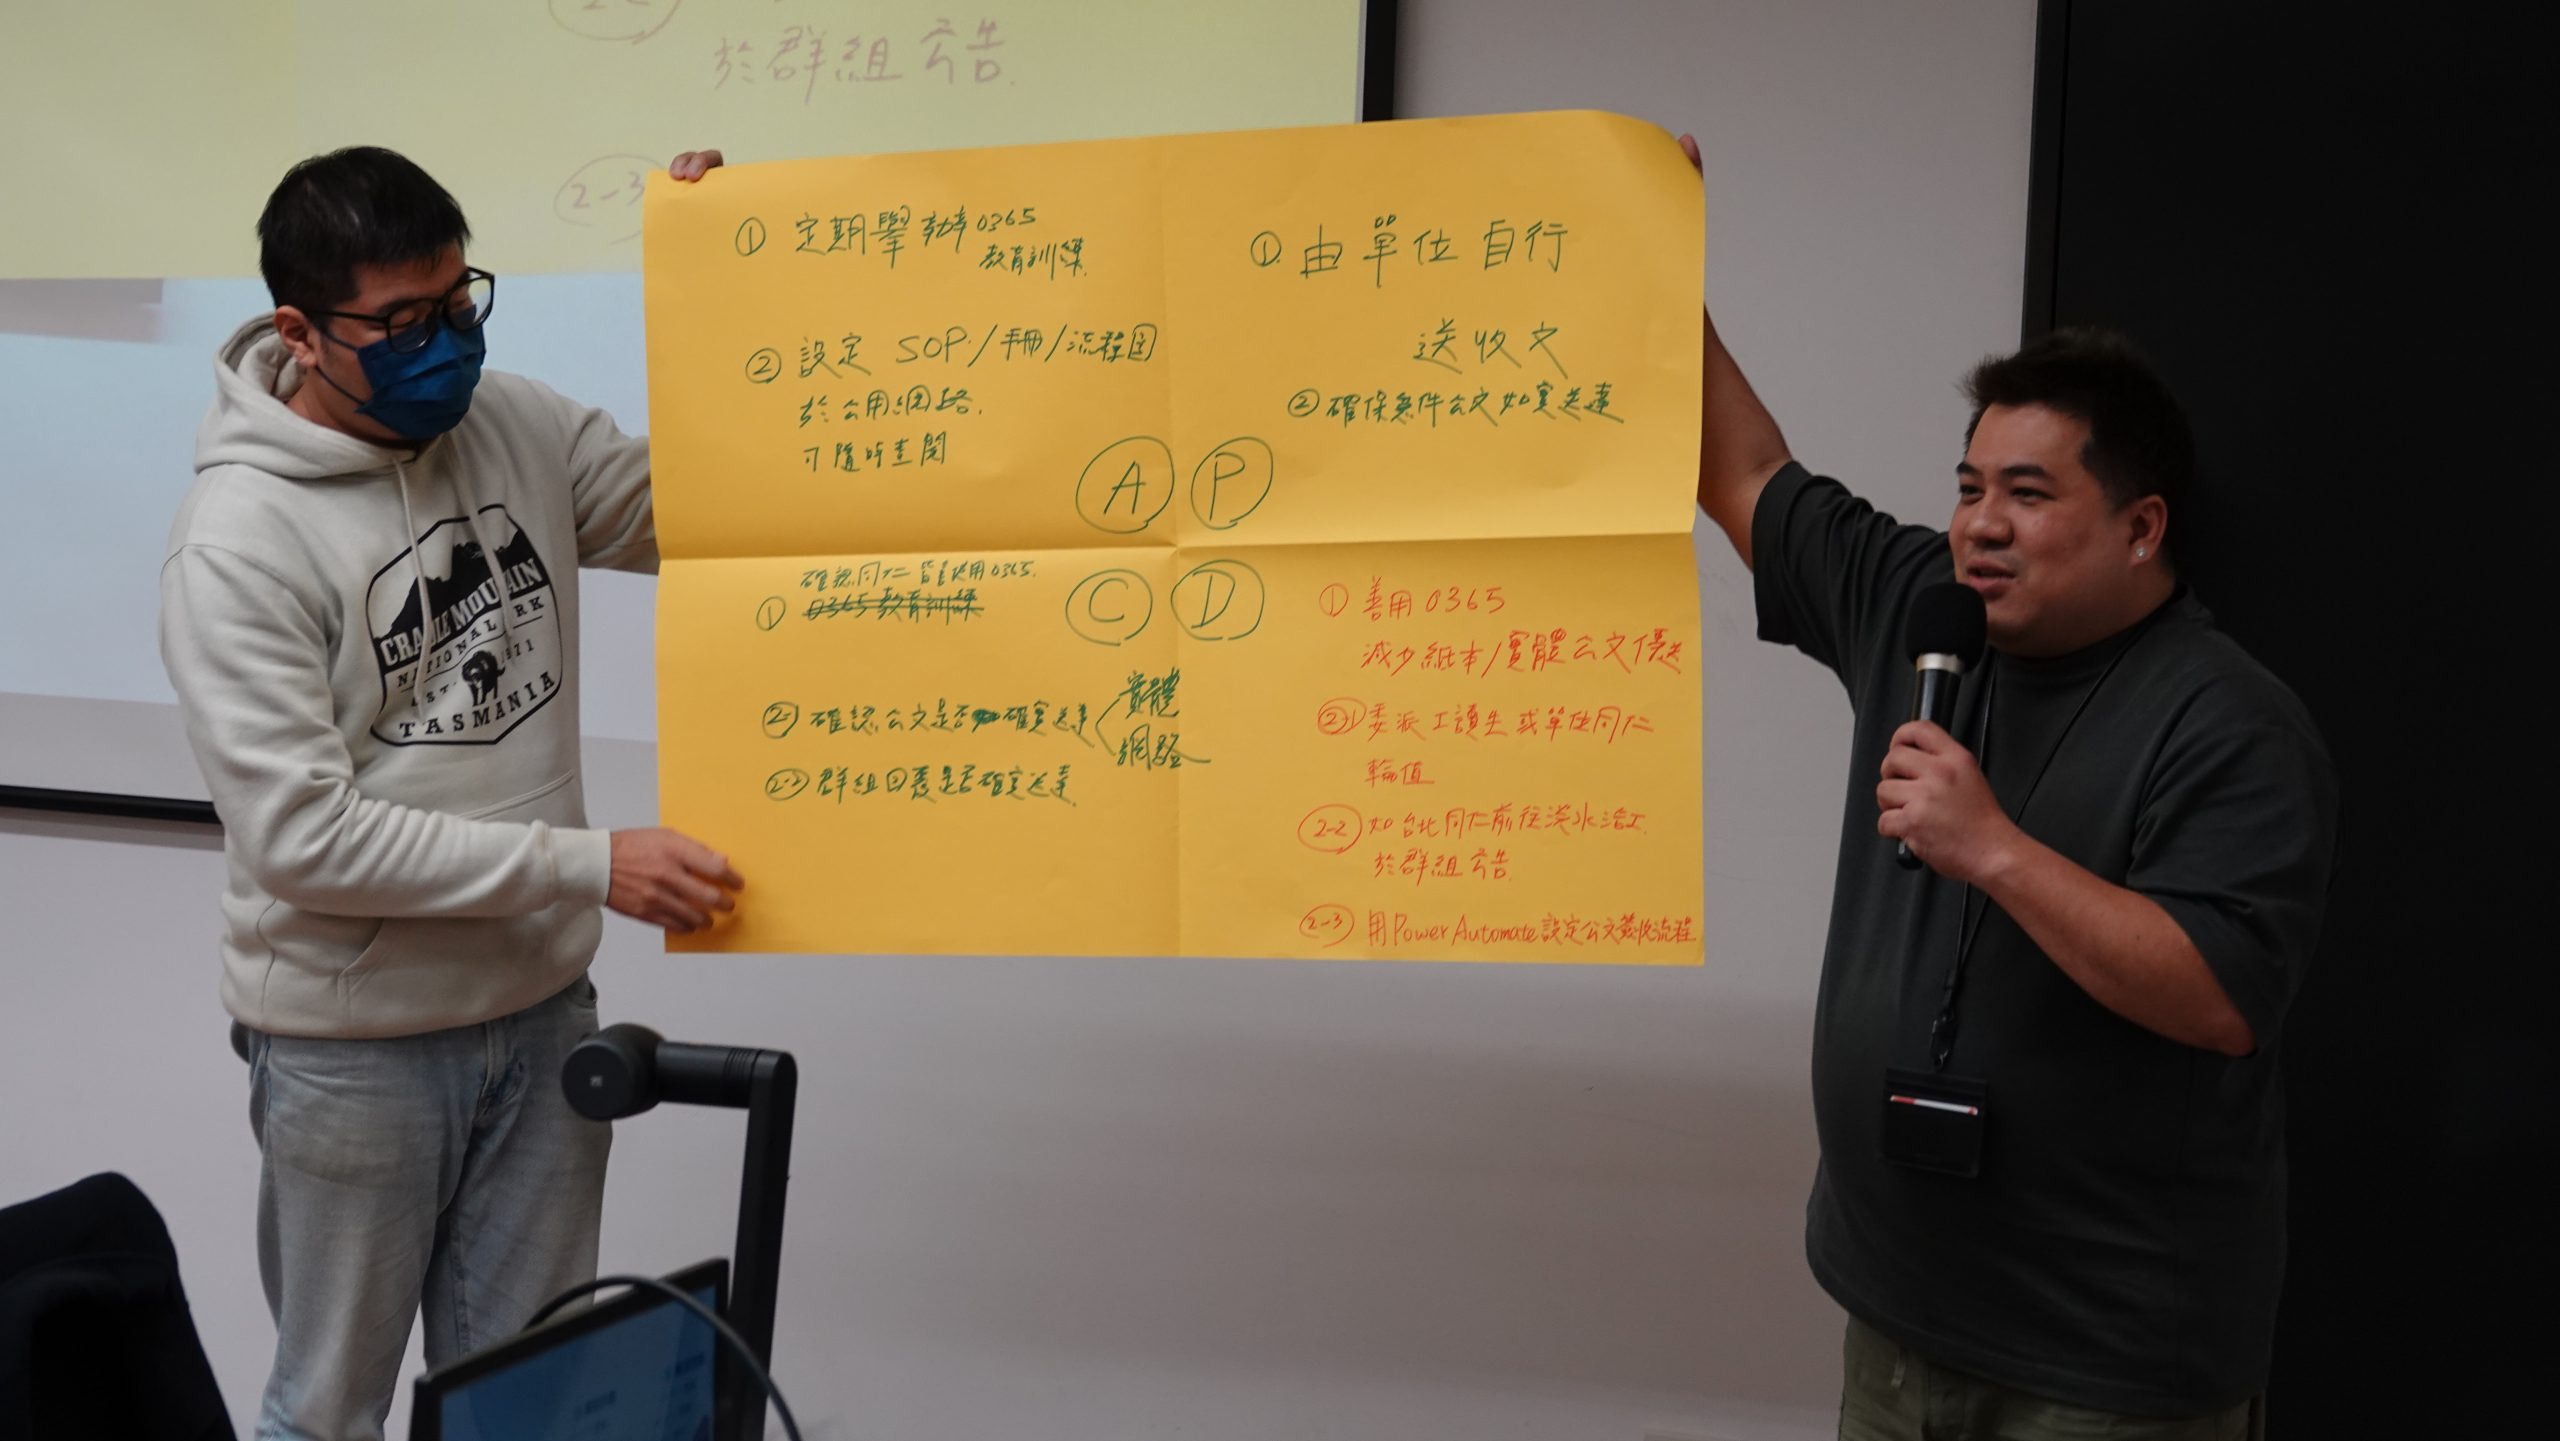 於群組公告.
2-3
① 定期舉辦O365
教育訓練.
② 設定 SOP/手冊/流程圖
於公用網路.
可隨時查閱
A
① 由單位自行
送收文
② 確保急件公文如實送達
P
確認同仁皆會使用O365.
① O365教育訓練
C
2-1 確認公文是否確實送達
實體
網路
2-2 群組回覆是否確實送達.
D
① 善用O365
減少紙本/實體公文傳送
2-1 委派工讀生或單位同仁
輪值
2-2 如台北同仁前往淡水洽工.
於群組公告.
2-3 用Power Automate設定公文簽收流程
CRADLE MOUNTAIN
NATIONAL PARK
EST. 1971
TASMANIA